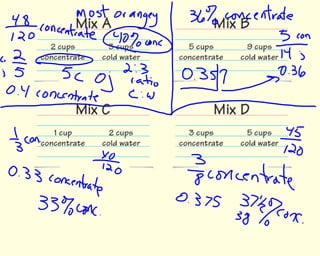 most orangey
Mix A
48
120 concentrate
40% conc
2 cups 3 cups
concentrate cold water
2
5
5c OJ
2:3
ratio
C:W
0.4 concentrate
36% concentrate
Mix B
5 cups 9 cups
concentrate cold water
5 con
14
0.357
0.36
Mix C
1
3 con
1 cup 2 cups
concentrate cold water
40
120
0.33 concentrate
33% conc.
Mix D
3 cups 5 cups
concentrate cold water
45
120
3
8 concentrate
0.375
38% conc.